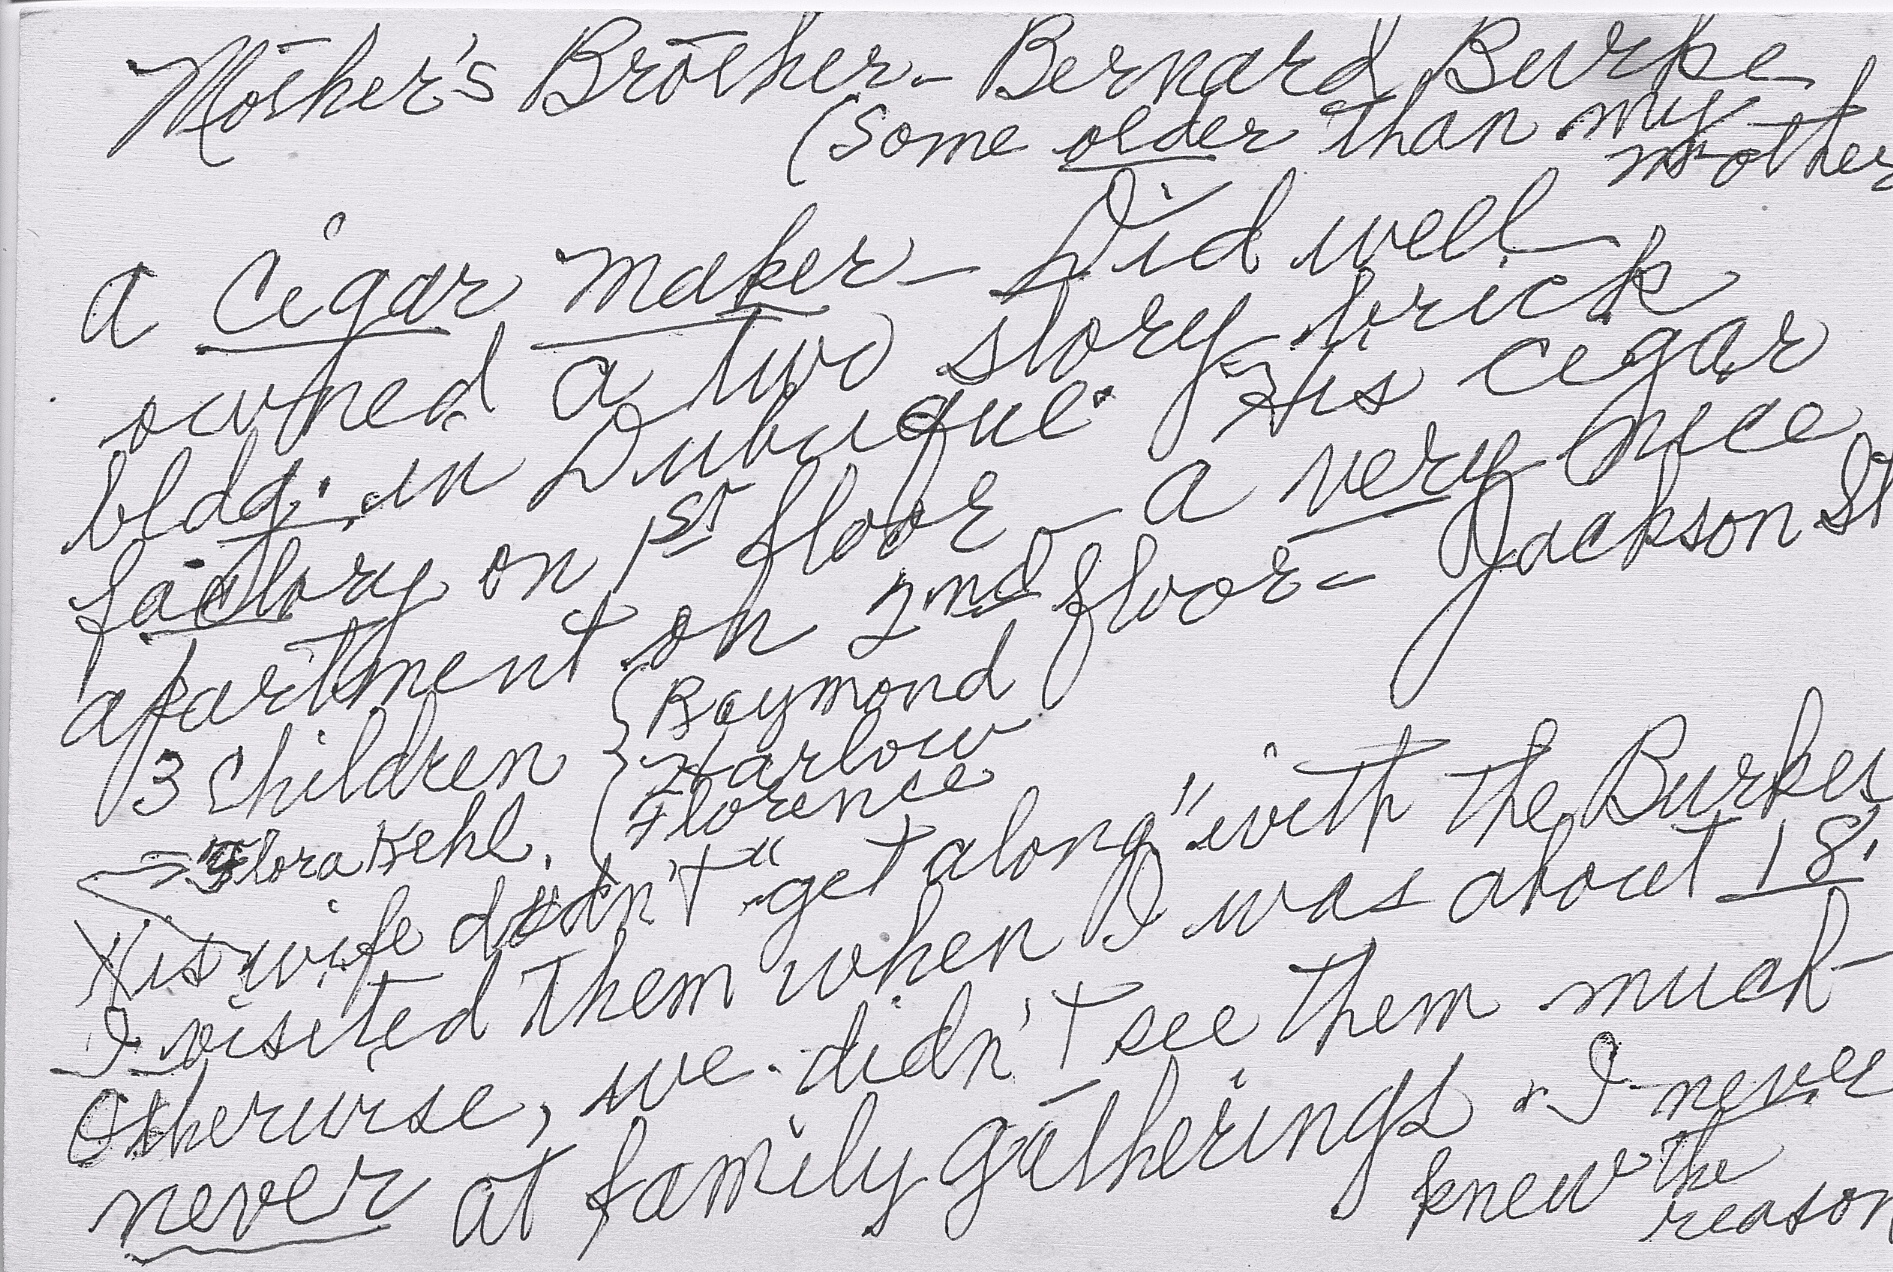 Mother's Brother - Bernard Burke
(Some older than my
mother
a Cigar maker - Did well
owned a two story brick
bldg. in Dubuque. His cigar
factory on 1st floor - a very nice
apartment on 2nd floor - Jackson St
3 Children { Raymond
Harlow
Florence
Flora Kehl.
His wife didn't "get along" with the Burkes
I visited them when I was about 18.
Otherwise, we didn't see them much -
never at family gatherings & I never
knew the
reason